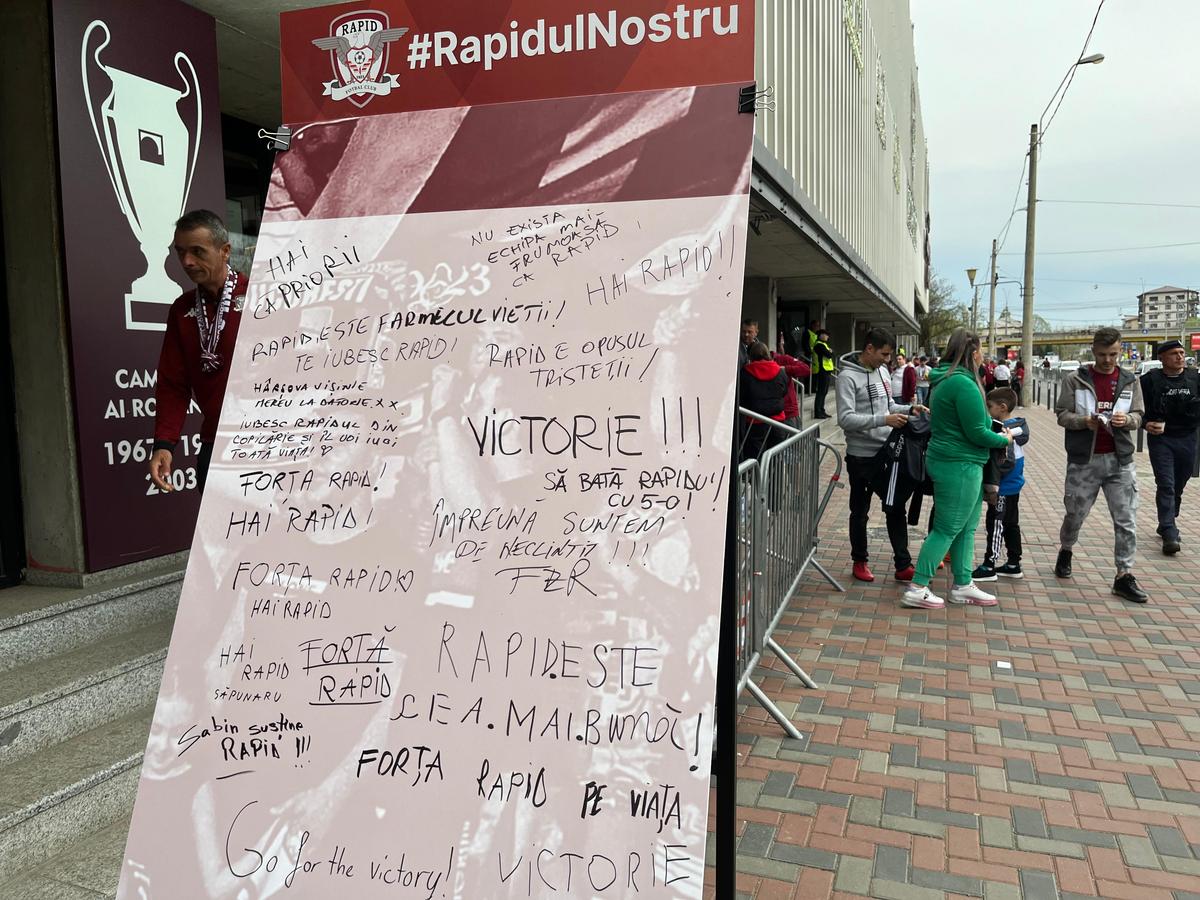 RAPID
FOTBAL CLUB
#RapidulNostru
HAI
CAPRIORII
NU EXISTA
ECHIPA MAI
FRUMOASĂ
CA RAPID
HAI RAPID!!
RAPID ESTE FARMECUL VIETII!
TE IUBESC RAPID!
RAPID E OPUSUL
TRISTEȚII!
HÂRȘOVA VIȘINIE
MEREU LA DATORIE XX
IUBESC RAPIDUL DIN
COPILĂRIE ȘI ÎL VOI IUBI
TOATĂ VIAȚA!
VICTORIE !!!
FORȚA RAPID!
SĂ BATĂ RAPIDU'!
CU 5-0!
HAI RAPID!
ÎMPREUNĂ SUNTEM
DE NECLINTIT !!!
FORȚA RAPID
FZR
HAI RAPID
HAI
RAPID
SĂPUNARU
FORȚĂ
RAPID
RAPID.ESTE
CEA.MAI.BUNĂ!
Sabin susține
RAPID !!!
FORȚA RAPID PE VIAȚA
Go for the victory!
VICTORIE
CAM
AI RO
1967
19
2003